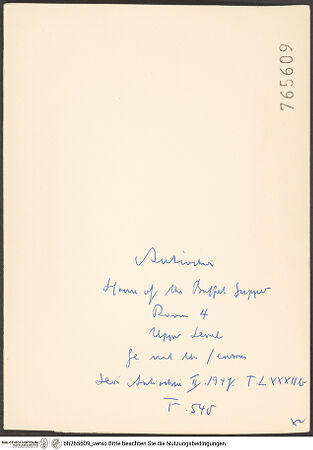 765609
Antiochia
House of the Buffet Supper
Room 4
Upper Level
Levi Antioch II. 1947. T. LXXXII b
F. 540
bh765609_verso Bitte beachten Sie die Nutzungsbedingungen.